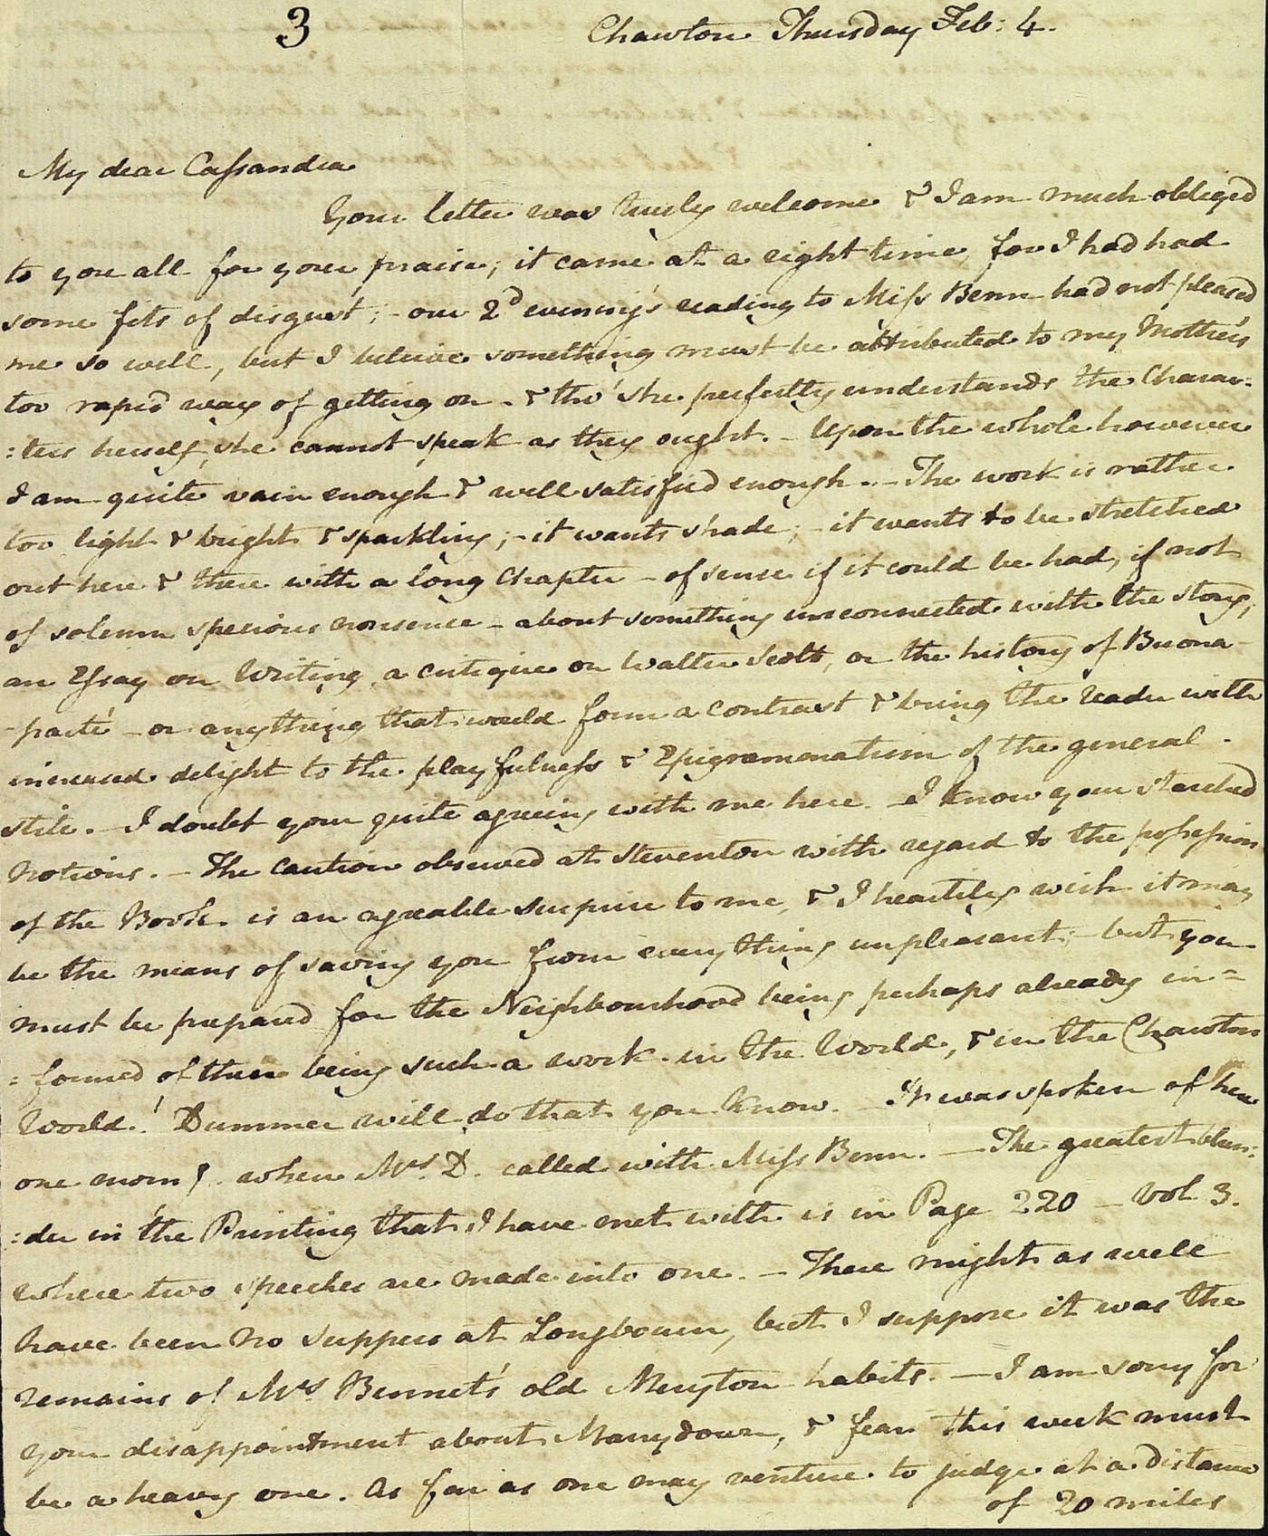 3
Chawton Thursday Feb: 4.
My dear Cassandra
Your letter was truly welcome & I am much obliged
to you all for your praise; it came at a right time, for I had had
some fits of disgust; - our 2d evening's reading to Miss Benn had not pleased
me so well, but I beleive something must be attributed to my Mother's
too rapid way of getting on - & tho' she perfectly understands the Charac-
:ters herself, she cannot speak as they ought. - Upon the whole however
I am quite vain enough & well satisfied enough. - The work is rather
too light & bright & sparkling; - it wants shade; - it wants to be stretched
out here & there with a long Chapter - of sense if it could be had, if not
of solemn specious nonsence - about something unconnected with the story;
an Essay on Writing, a critique on Walter Scott, or the history of Buona-
-parté - or anything that would form a contrast & bring the reader with
increased delight to the playfulness & Epigrammatism of the general
stile. - I doubt your quite agreeing with me here - I know your starched
Notions. - The caution observed at Steventon with regard to the possession
of the Book is an agreable surprise to me, & I heartily wish it may
be the means of saving you from everything unpleasant; - but you
must be prepared for the Neighbourhood being perhaps already in=
:formed of there being such a Work in the World, & in the Chawton
World! Dummer will do that you know. - It was spoken of here
one morng when Mrs. D. called with Miss Benn. - The greatest blun:
:der in the Printing that I have met with is in Page 220 - Vol. 3.
where two speeches are made into one. - There might as well
have been no suppers at Longbourn, but I suppose it was the
remains of Mrs. Bennet's old Meryton habits. - I am sorry for
your disappointment about Manydown, & fear this week must
be a heavy one. As far as one may venture to judge at a distance
of 20 miles